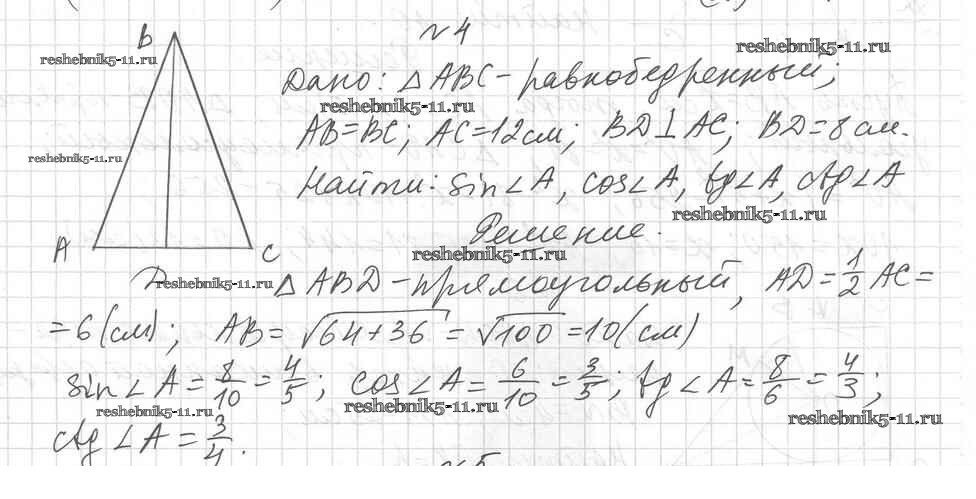 №4
B
reshebnik5-11.ru
reshebnik5-11.ru
Дано: △ABC - равнобедренный;
reshebnik5-11.ru
AB=BC; AC=12см; BD⊥AC; BD=8см.
reshebnik5-11.ru
Найти: sin∠A, cos∠A, tg∠A, ctg∠A
reshebnik5-11.ru
Решение.
A C
reshebnik5-11.ru
D
reshebnik5-11.ru
△ABD - прямоугольный, AD=1/2 AC=
=6(см); AB=√64+36=√100=10(см)
sin∠A=8/10=4/5; cos∠A=6/10=3/5; tg∠A=8/6=4/3;
reshebnik5-11.ru
reshebnik5-11.ru
reshebnik5-11.ru
ctg∠A=3/4.
№5